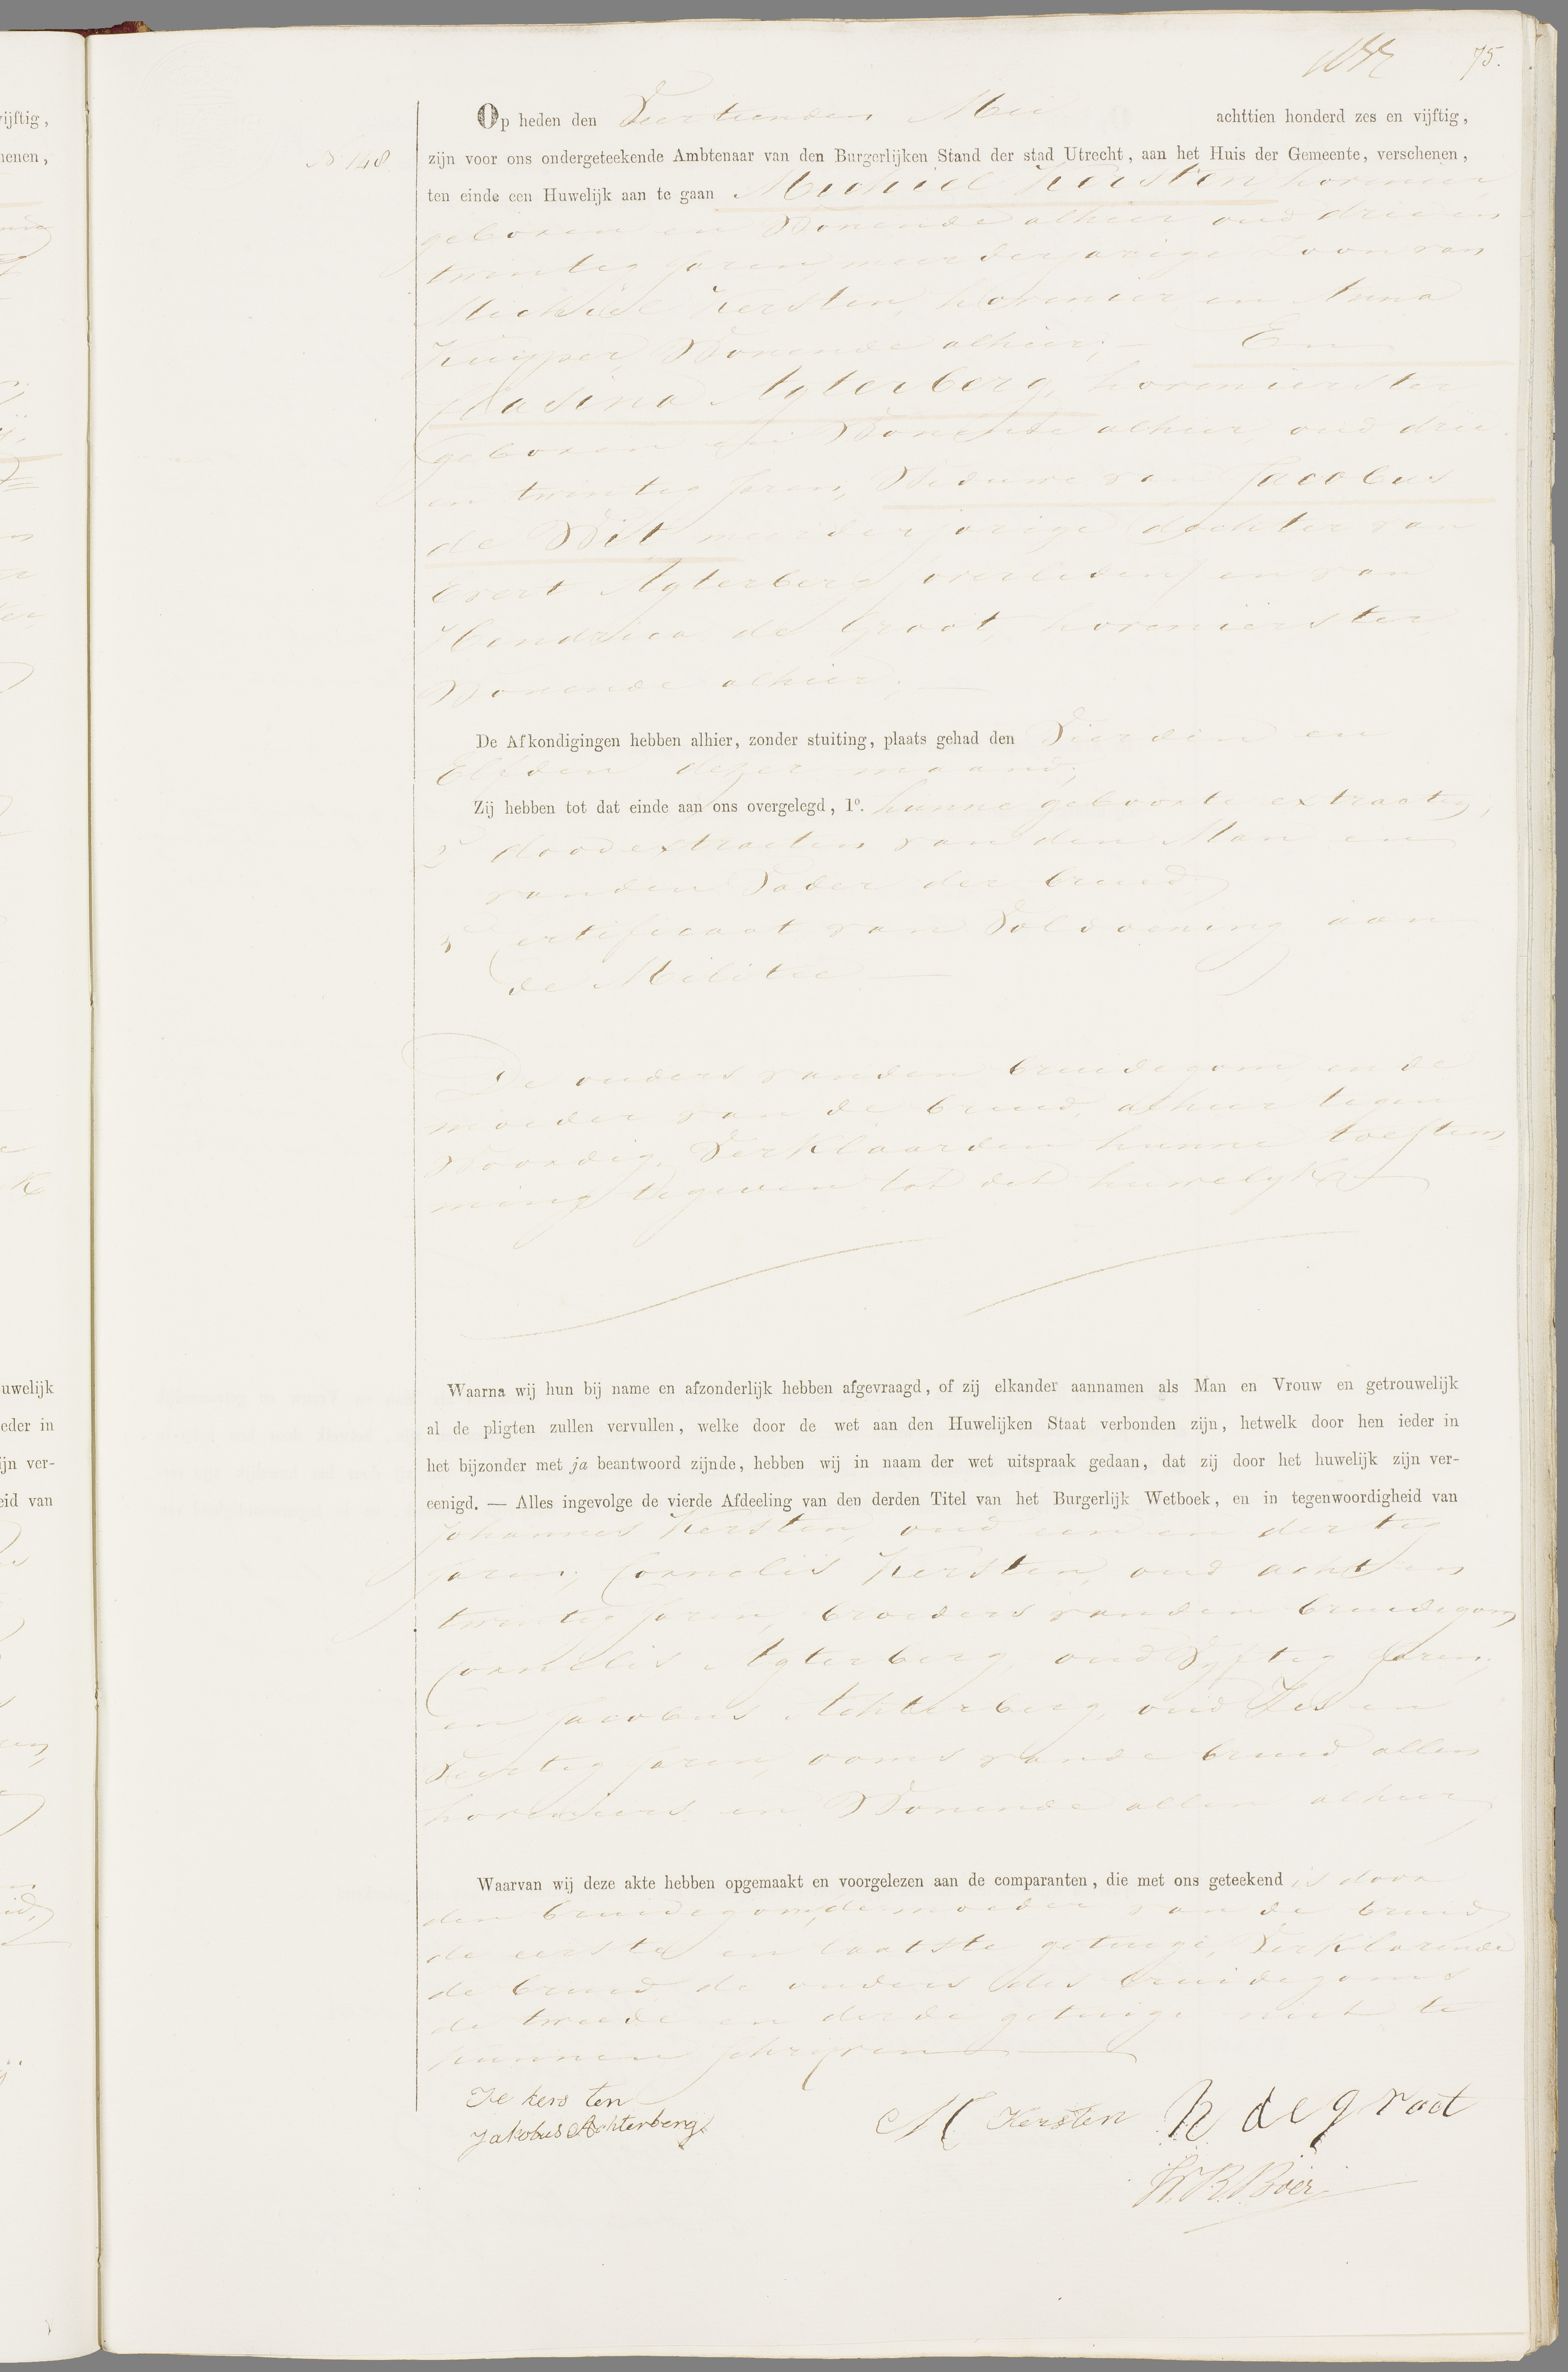 75.
Op heden den Veertienden Mei achttien honderd zes en vijftig,
N 148.
zijn voor ons ondergeteekende Ambtenaar van den Burgerlijken Stand der stad Utrecht, aan het Huis der Gemeente, verschenen,
ten einde een Huwelijk aan te gaan Michiel Kersten hovenier
geboren en Wonende alhier oud drie en
twintig Jaren, meerderjarige Zoon van
Michiel Kersten, hovenier en Anna
Kuijper, Wonende alhier; En
Clasina Agterberg, hovenierster
geboren en Wonende alhier, oud drie
en twintig Jaren, Weduwe van Jacobus
de Wit meerderjarige dochter van
Evert Agterberg, overleden en van
Hendrica de Groot, hovenierster
Wonende alhier;
De Afkondigingen hebben alhier, zonder stuiting, plaats gehad den Vierden en
Elfden dezer maand;
Zij hebben tot dat einde aan ons overgelegd, 1º. hunne geboorte extracten,
2 doodextracten van den Man en
van den Vader der bruid
3 Certificaat van Voldoening aan
de Militie
De ouders van den bruidegom en de
moeder van de bruid, alhier tegen
Woordig, Verklaarden hunne toestem
ming tegeven tot dit huwelijk
Waarna wij hun bij name en afzonderlijk hebben afgevraagd, of zij elkander aannamen als Man en Vrouw en getrouwelijk
al de pligten zullen vervullen, welke door de wet aan den Huwelijken Staat verbonden zijn, hetwelk door hen ieder in
het bijzonder met ja beantwoord zijnde, hebben wij in naam der wet uitspraak gedaan, dat zij door het huwelijk zijn ver-
eenigd. — Alles ingevolge de vierde Afdeeling van den derden Titel van het Burgerlijk Wetboek, en in tegenwoordigheid van
Johannes Kersten, oud een en dertig
Jaren, Cornelis Kersten, oud acht en
twintig Jaren, broeders van den bruidegom
Cornelis Agterberg, oud Vyftig Jaren,
en Jacobus Achterberg, oud Zes en
Veertig Jaren, ooms van de bruid, allen
hoveniers en Wonende allen alhier
Waarvan wij deze akte hebben opgemaakt en voorgelezen aan de comparanten, die met ons geteekend is door
den bruidegom, de moeder van de bruid
de eerste en laatste getuige, Verklarende
de bruid de ouders des bruidegoms
de tweede en derde getuige niet te
kunnen schryven
Je kers ten
Jakobus Achterberg
M Kersten h de groot